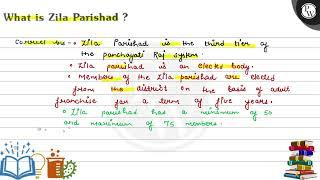 What is Zila Parishad ?
Correct Ans - • Zila Parishad is the third tier of
the panchayati Raj system.
• Zila parishad is an elected body.
• Members of the Zila parishad are elected
from the district on the basis of adult
franchise for a term of five years.
• Zila parishad has a minimum of 50
and maximum of 75 members.